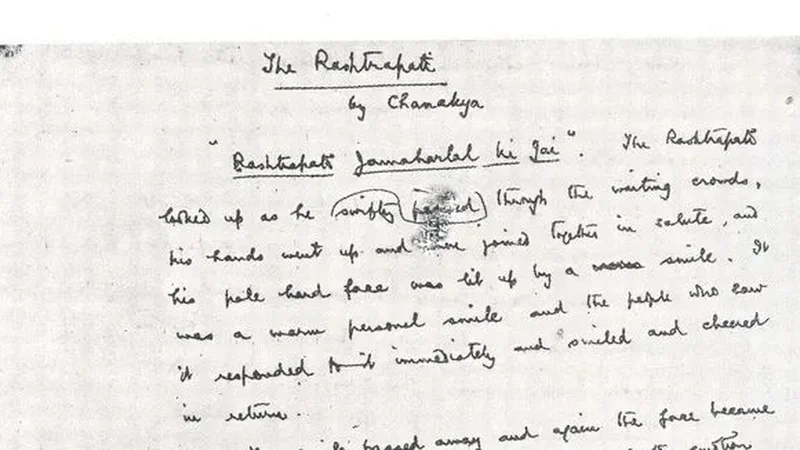 The Rashtrapati
by Chanakya
"Rashtrapati Jawaharlal ki Jai". The Rashtrapati
looked up as he swiftly passed through the waiting crowds,
his hands went up and were joined together in salute, and
his pale hard face was lit up by a smile. It
was a warm personal smile and the people who saw
it responded to it immediately and smiled and cheered
in return.
passed away and again the face became
the